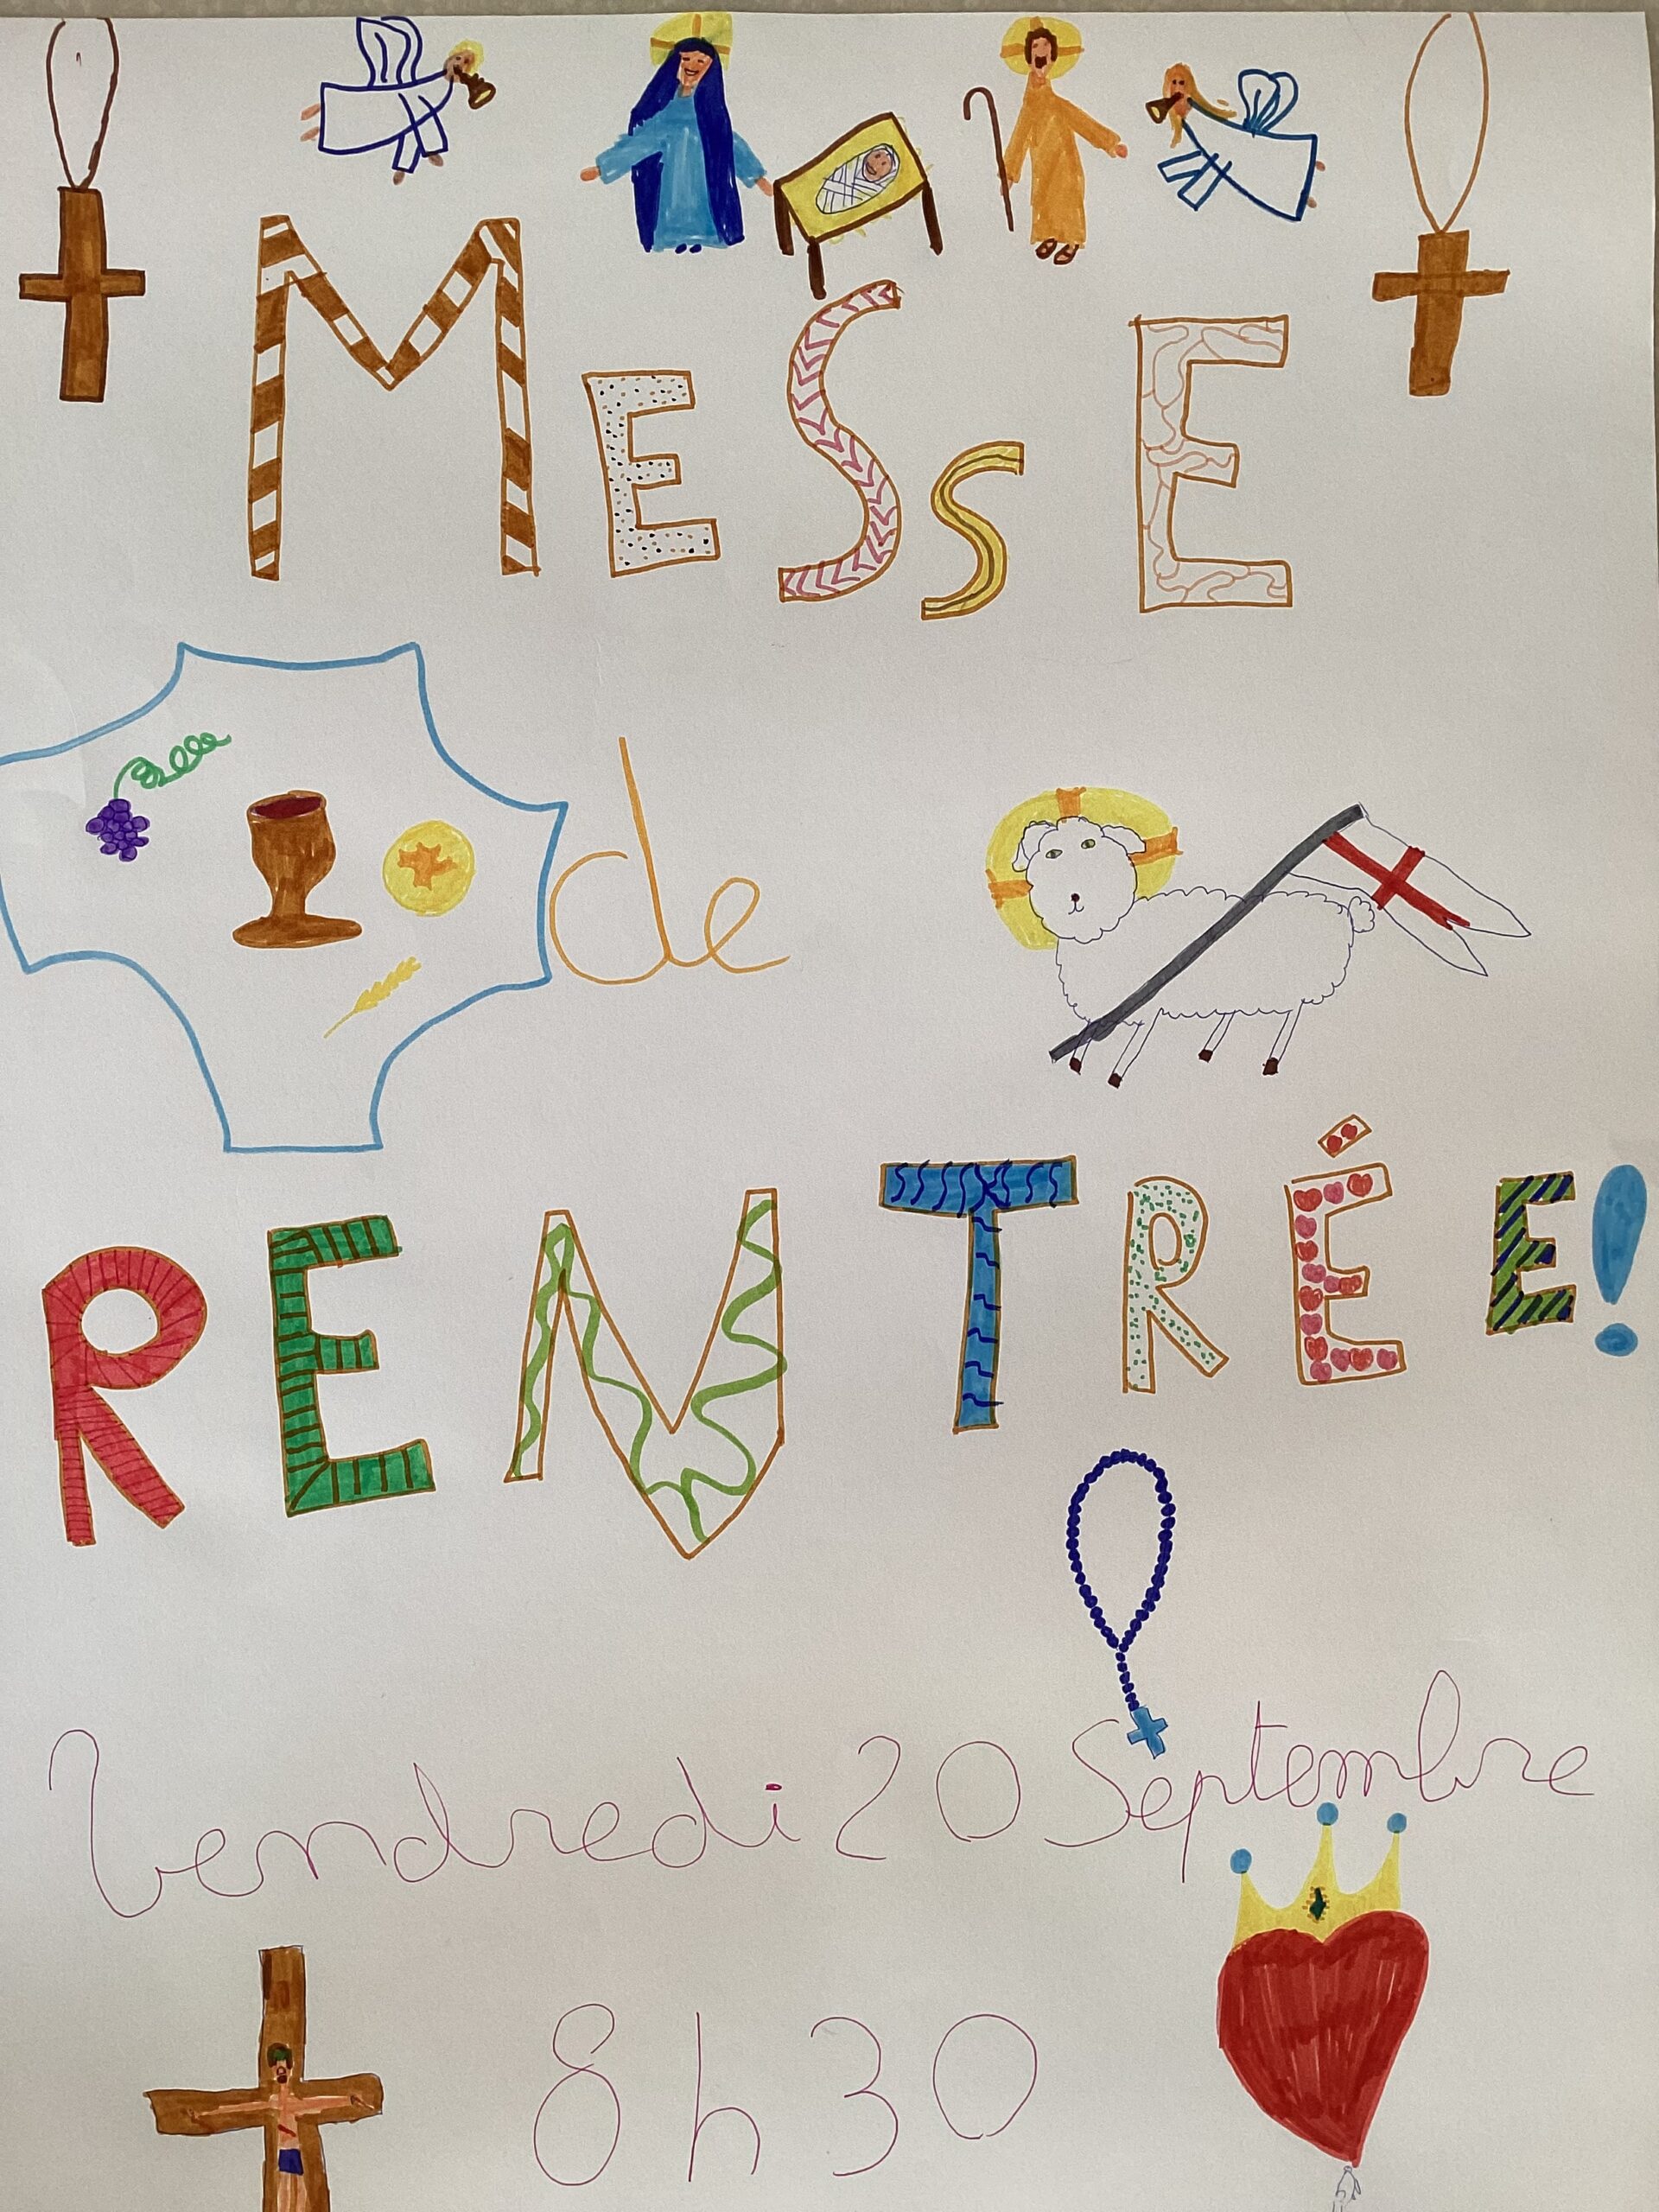 MESSE
de
RENTRÉE!
Vendredi 20 Septembre
8h30